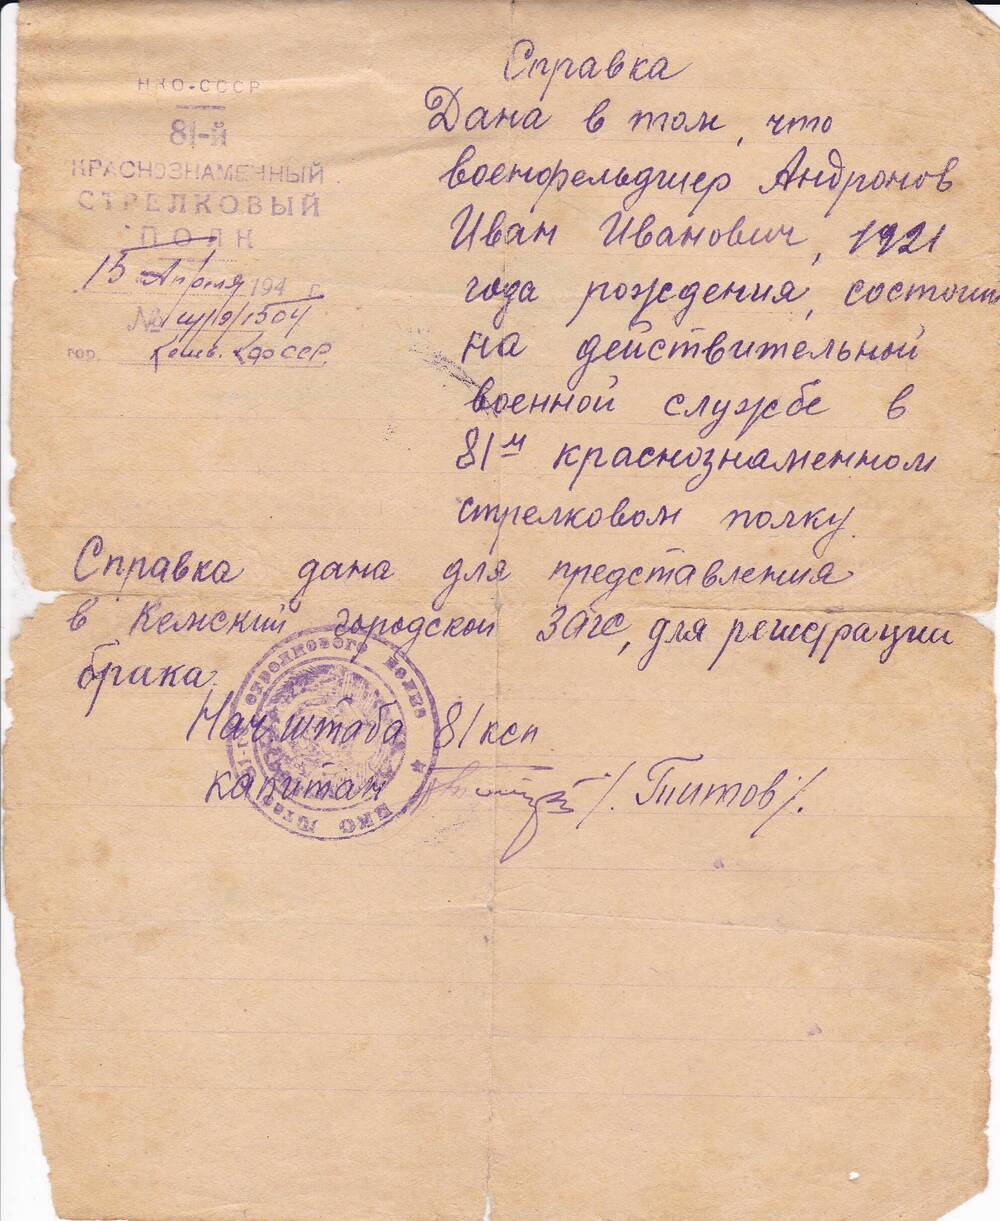 НКО-СССР
81-й
КРАСНОЗНАМЕННЫЙ
СТРЕЛКОВЫЙ
ПОЛК
15 Апреля 194 г.
№ ш/19/1504
гор. Кемь.
Справка
Дана в том, что
военфельдшер Андронов
Иван Иванович, 1921
года рождения, состоит
на действительной
военной службе в
81м краснознаменном
стрелковом полку.
Справка дана для представления
в Кемский городской ЗАГС, для регистрации
брака.
Нач штаба 81 ксп
капитан /. Титов /.
стрелкового полка ★ НКО